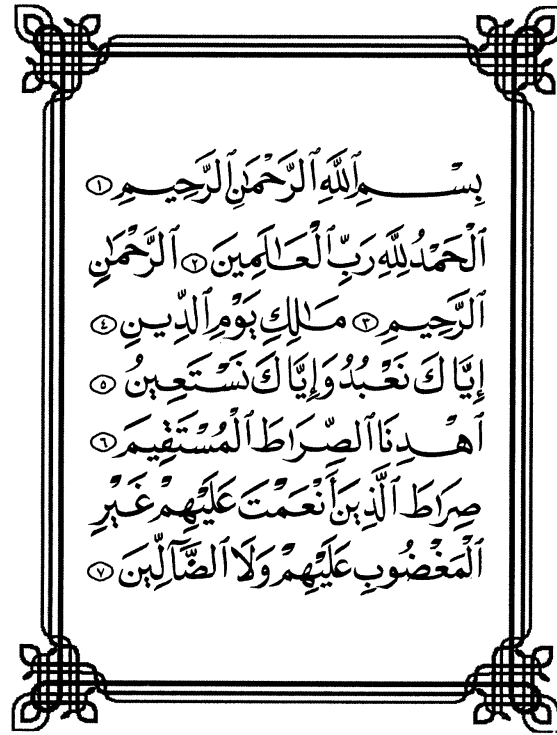 بِسْمِ ٱللَّهِ ٱلرَّحْمَٰنِ ٱلرَّحِيمِ ١
ٱلْحَمْدُ لِلَّهِ رَبِّ ٱلْعَٰلَمِينَ ٢ ٱلرَّحْمَٰنِ
ٱلرَّحِيمِ ٣ مَٰلِكِ يَوْمِ ٱلدِّينِ ٤
إِيَّاكَ نَعْبُدُ وَإِيَّاكَ نَسْتَعِينُ ٥
ٱهْدِنَا ٱلصِّرَاطَ ٱلْمُسْتَقِيمَ ٦
صِرَاطَ ٱلَّذِينَ أَنْعَمْتَ عَلَيْهِمْ غَيْرِ
ٱلْمَغْضُوبِ عَلَيْهِمْ وَلَا ٱلضَّآلِّينَ ٧